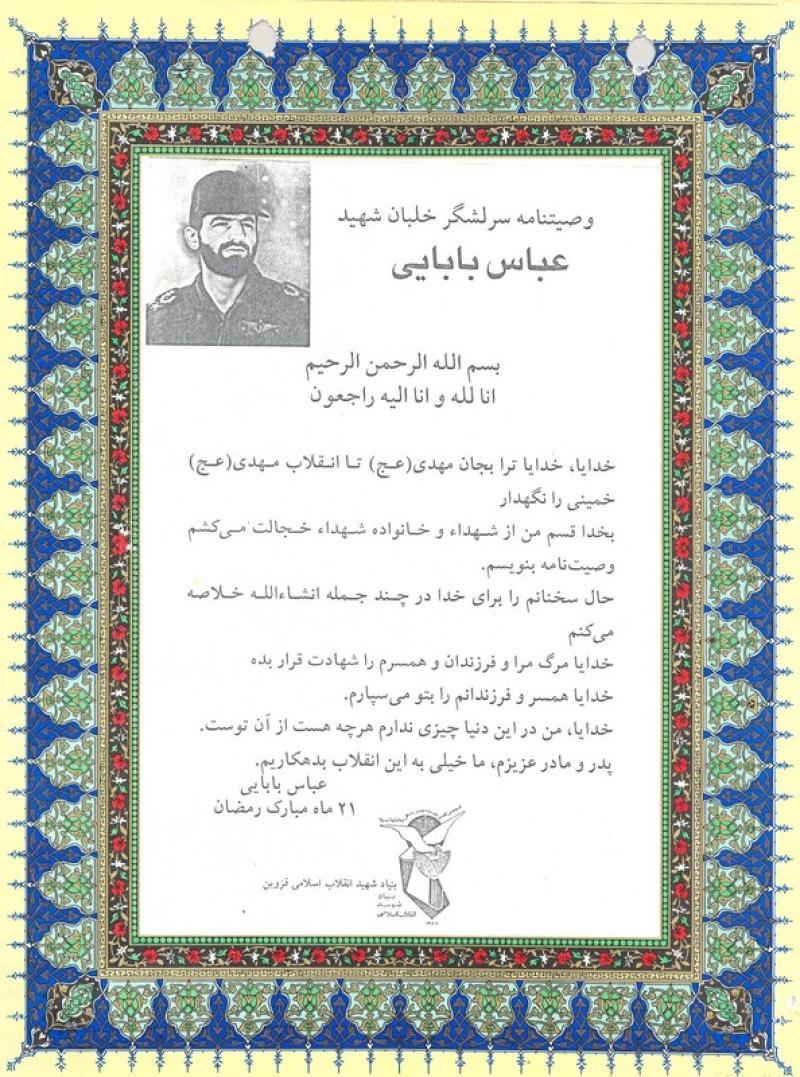 وصیتنامه سرلشگر خلبان شهید
عباس بابایی
بسم الله الرحمن الرحیم
انا لله و انا الیه راجعون
خدایا، خدایا ترا بجان مهدی(عج) تا انقلاب مهدی(عج)
خمینی را نگهدار
بخدا قسم من از شهداء و خانواده شهداء خجالت می‌کشم
وصیت‌نامه بنویسم.
حال سخنانم را برای خدا در چند جمله انشاءالله خلاصه
می‌کنم
خدایا مرگ مرا و فرزندان و همسرم را شهادت قرار بده
خدایا همسر و فرزندانم را بتو می‌سپارم.
خدایا، من در این دنیا چیزی ندارم هرچه هست از آن توست.
پدر و مادر عزیزم، ما خیلی به این انقلاب بدهکاریم.
عباس بابایی
۲۱ ماه مبارک رمضان
بنیاد شهید انقلاب اسلامی قزوین
بنیاد
شهید
انقلاب اسلامی